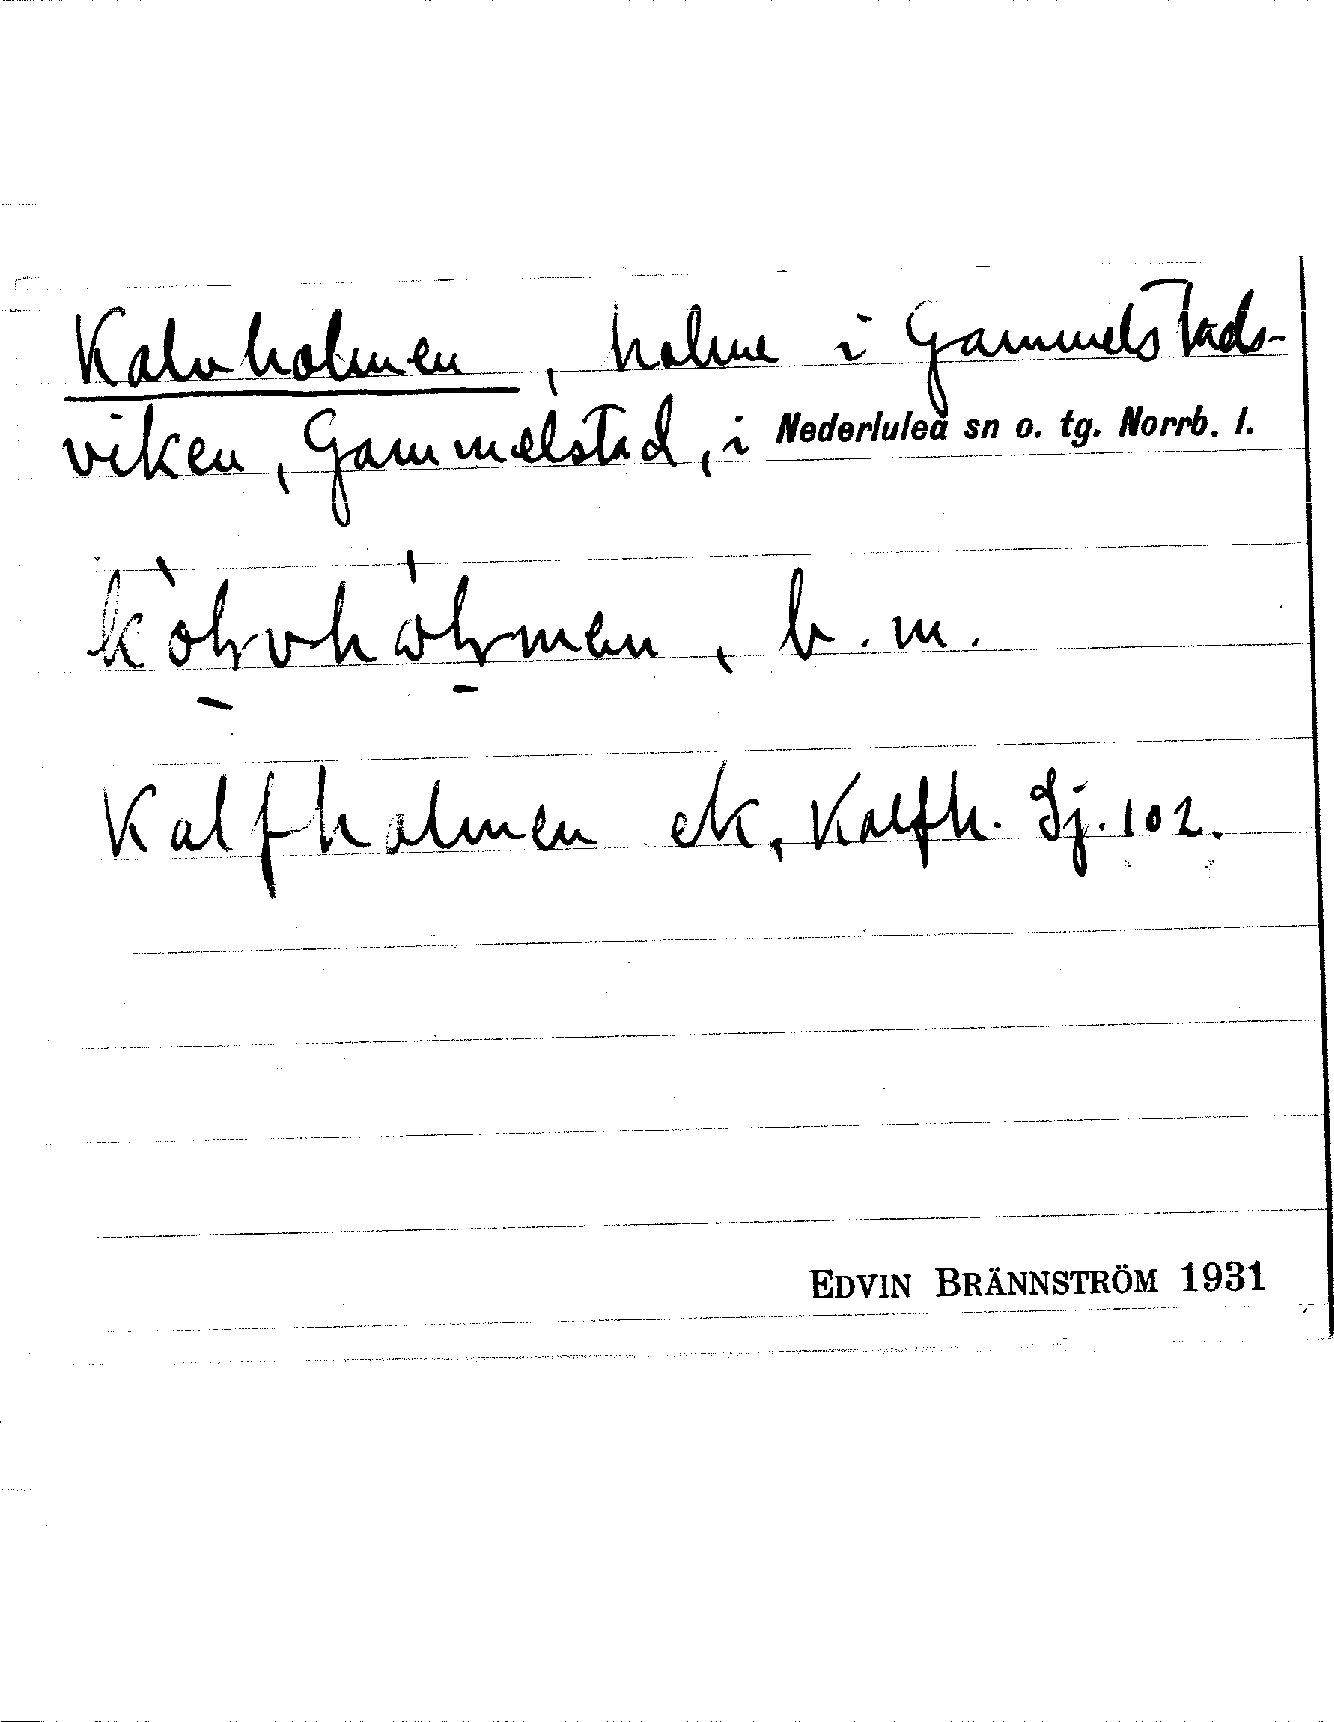 Kalvholmen, holme i Gammelstads-
viken, Gammelstad, i Nederluleå sn o. tg. Norrb. l.
b. m.
Kalfholmen ek, Kalfh. Sj. 102.
EDVIN BRÄNNSTRÖM 1931